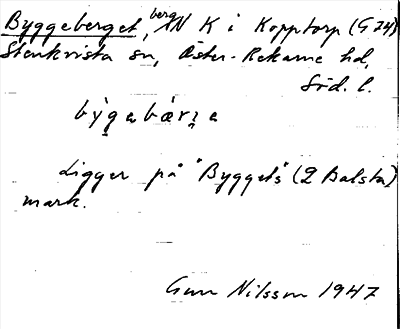 Byggeberget, berg N K i Kopptorp (G 24)
Stenkvista sn, Öster-Rekarne hd,
Söd. l.
bỳgabærṇa
Ligger på "Byggets" (2 Balsta)
mark.
Gun Nilsson 1947